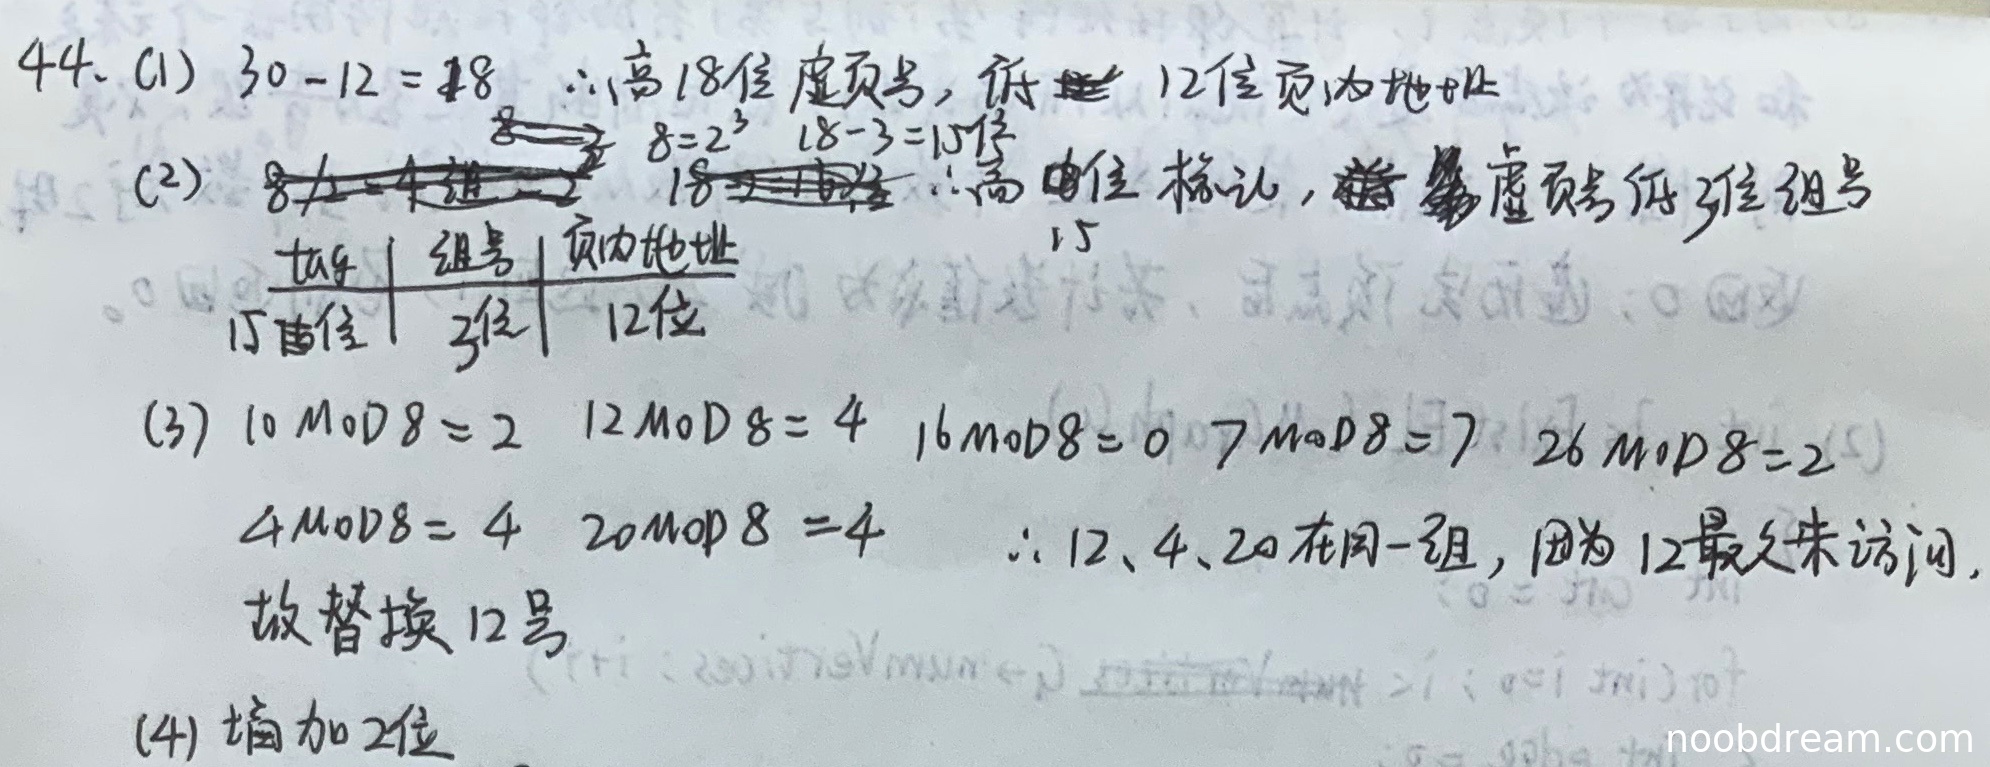 44、(1) 30-12=18 ∴高18位虚页号，低 12位页内地址
8=2³ 18-3=15位
(2) 18 ∴高 位 标记， 虚页号低3位组号
15
tag 组号 页内地址
15位 3位 12位
(3) 10 MOD 8 = 2 12 MOD 8 = 4 16 MOD 8 = 0 7 MOD 8 = 7 26 MOD 8 = 2
4 MOD 8 = 4 20 MOD 8 = 4 ∴12、4、20在同一组，因为12最久未访问，
故替换12号
(4) 增加2位
noobdream.com